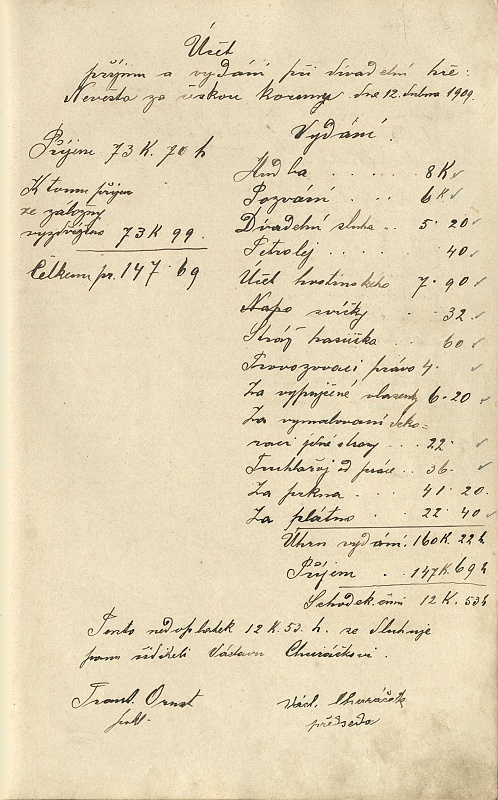 Účet
příjmu a vydání při divadelní hře:
Nevěsta za českou korunu dne 12. dubna 1909.
Příjem 73 K. 70 h
K tomu příjem
ze zálozny
vyzdviženo 73 K 99.
Celkem př. 147 69
Vydání.
Hudba . . . . . 8 K
Pozvání . . . 6 K
Divadelní sluha . . 5 20
Petrolej . . 40
Účet hostinského 7 90
Napo svíčky . . 32
Stráž hasičská . . 60
Provozovací právo 4.
Za vypůjčené vlasenky 6.20
Za vymalovaní deko-
rací jedné strany . . . 22.
Truhlářoj od práce . . 36.
Za prkna . . . 41 20.
Za plátno . . . 22 40
Úhrn vydání. 160 K. 22 h
Příjem . . 147 K. 69 h
Schodek činí 12 K. 53 h
Tento nedoplatek 12 K. 53. h. se dluhuje
panu řediteli Václavu Churáčkovi.
Frant. Ornst
pokl.
Václ. Churáček
předseda